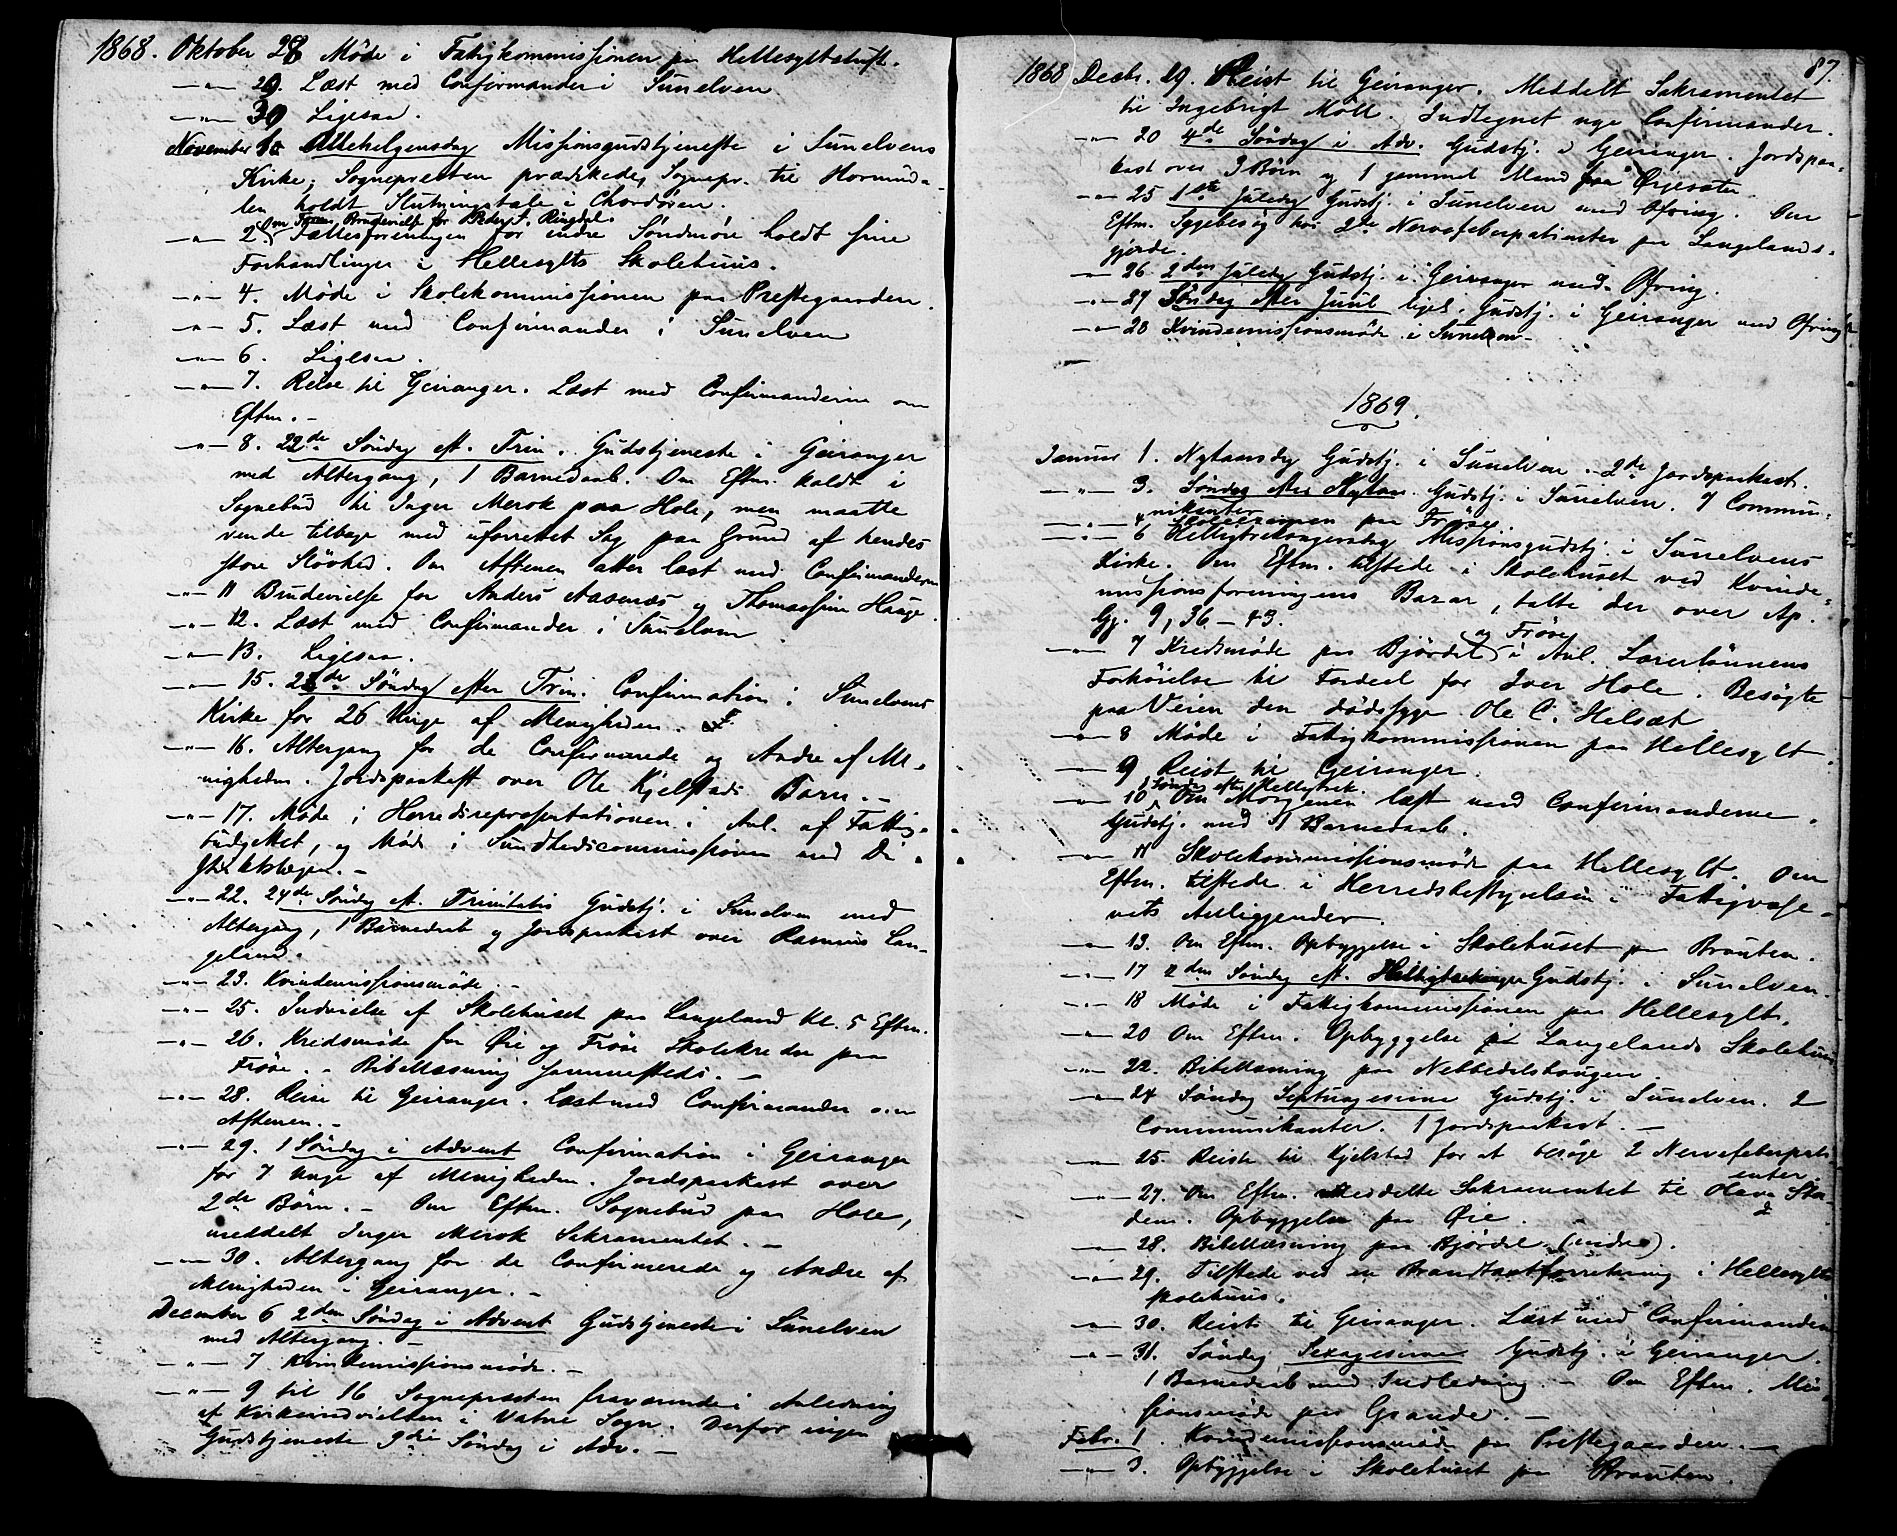 1868. Oktober 28 Møde i Fattigkommissionen paa Hellesyltstuft.
—"— 29. Læst med Confirmander i Sunelven
—"— 30 Ligesaa.
November 1ste Allehelgensdag Missionsgudstjeneste i Sunelvens
Kirke; Sognepresten prædikede, Sognepr. til Hornind-
len holdt Slutningstale i Chordøren.
Om Brudevielse for Peder Ringdal.
—"— 2. Fællesforeningen for indre Søndmøre holdt sine
Forhandlinger i Hellesylts Skolehuus.
—"— 4. Møde i Skolekommissionen paa Prestegaarden.
—"— 5. Læst med Confirmander i Sunelven
—"— 6. Ligesaa.
—"— 7. Reise til Geiranger. Læst med Confirmanderne om
Eftm. –
—"— 8. 22de Søndag eft. Trin. Gudstjeneste i Geiranger
med Altergang, 1 Barnedaab. Om Eftm. kaldt i
Sognebud til Inger Merok paa Hole, men maatte
vende tilbage med uforrettet Sag paa Grund af hendes
store Sløvhed. Om Aftenen atter læst med Confirmanderne
—"— 11 Brudevielse for Anders Aasenæs og Thomassine Hauge.
—"— 12. Læst med Confirmander i Sunelven
—"— 13. Ligesaa.
—"— 15. 23de Søndag efter Trin. Confirmation i Sunelvens
Kirke for 26 Unge af Menigheden.
—"— 16. Altergang for de Confirmerede og Andre af Me-
nigheden. Jordspaakast over Ole Kjelstads Barn. –
—"— 17. Møde i Herredsrepresentationen i Anl. af Fattig-
budgettet, og Møde i Sundhedscommissionen med Di-
striktslægen. –
—"— 22. 24de Søndag eft. Trinitatis Gudstj. i Sunelven med
Altergang, 1 Barnedaab og Jordspaakast over Rasmus Lan-
geland.
—"— 23. Kvindemissionsmøde. –
—"— 25. Indvielse af Skolehuset paa Langeland Kl. 5 Eftm.
—"— 26. Kredsmøde for Øie og Frøse Skolekredse paa
Frøse. – Bibellæsning sammesteds. –
—"— 28. Reise til Geiranger. Læst med Confirmander om
Aftenen. –
—"— 29. 1 Søndag i Advent Confirmation i Geiranger
for 7 Unge af Menigheden. Jordspaakast over
2de Børn. – Om Eftm. Sognebud paa Hole,
meddelt Inger Merok Sakramentet. –
—"— 30. Altergang for de Confirmerede og Andre af
Menigheden i Geiranger. –
December 6 2den Søndag i Advent Gudstjeneste i Sunelven
med Altergang. –
—"— 7. Kvindemissionsmøde. –
—"— 9 til 16 Sognepresten fraværende i Anledning
af Kirkeindvielsen i Vatne Sogn. Derfor ingen
Gudstjeneste 3die Søndag i Adv. –
87.
1868 Decbr. 19. Reist til Geiranger. Meddelt Sakramentet
til Ingebrigt Möll. Indtegnet nye Confirmander.
—"— 20 4de Søndag i Adv. Gudstj. i Geiranger. Jordspaa-
kast over 3 Børn og 1 gammel Mand fra Ørjesæter
—"— 25 1ste Juledag Gudstj. i Sunelven med Ofring. Om
Eftm. Sygebesøg hos 2de Nervefeberpatienter paa Langelands-
gjerde.
—"— 26 2den Juledag Gudstj. i Geiranger med Ofring.
—"— 27 Søndag efter Juul ligel. Gudstj. i Geiranger med Ofring
—"— 28 Kvindemissionsmøde i Sunelven –
1869.
Januar 1. Nytaarsdag Gudstj. i Sunelven. 2de Jordspaakast.
—"— 3. Søndag efter Nytaar. Gudstj. i Sunelven. 7 Commu-
nikanter
—"— 4 Skoleexamen paa Frøse.
—"— 6 Helligtrekongersdag Missionsgudstj. i Sunelvens
Kirke. Om Eftm. tilstede i Skolehuset ved Kvinde-
missionsforeningens Bazar, talte der over Ap.
Gj. 9, 36–43.
—"— 7 Kredsmøde paa Bjørdal og Frøse i Anl. Lærerlønnens
Forhøielse til Fordeel for Iver Hole. Besøgte
paa Veien den dødssyge Ole C. Helsæt
—"— 8 Møde i Fattigkommissionen paa Hellesylt.
—"— 9 Reist til Geiranger.
—"— 10 1 Søndag efter Helligtrek. Om Morgenen læst med Confirmanderne.
Gudstj. med 1 Barnedaab.
—"— 11 Skolekommissionsmøde paa Hellesylt. Om
Eftm. tilstede i Herredsbestyrelsen i Fattigvæse-
nets Anliggender.
—"— 13. Om Eftm. Opbyggelse i Skolehuset paa Brauten.
—"— 17 2den Søndag eft. Helligtrekonger Gudstj. i Sunelven.
—"— 18 Møde i Fattigkommissionen paa Hellesylt.
—"— 20 Om Eftm. Opbyggelse på Langelands Skolehuus
—"— 22. Bibellæsning paa Nebbedalshaugen.
—"— 24 Søndag Septuagesima Gudstj. i Sunelven. 2
Communikanter. 1 Jordspaakast. –
—"— 25. Reiste til Kjelstad for at besøge 2 Nervefeberpati-
enter.
—"— 27. Om Eftm. meddelte Sakramentet til Olava Sta-
dem. Opbyggelse paa Øie.
—"— 28. Bibellæsning paa Bjørdal (indre).
—"— 29. Tilstede ved en Brandtaxtforretning i Hellesylts
Skolehuus.
—"— 30. Reiste til Geiranger. Læst med Confirmanderne
—"— 31. Søndag Sexagesima Gudstj. i Geiranger.
1 Barnedaab med Indledning. – Om Eftm. Mis-
sionsmøde paa Grande. –
Febr. 1. Kvindemissionsmøde paa Prestegaarden. –
—"— 3. Opbyggelse i Skolehuset paa Brauten.